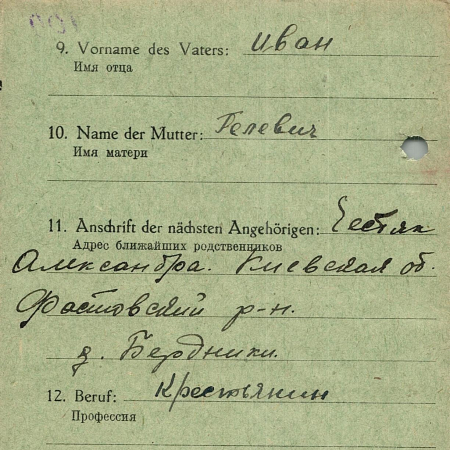 9. Vorname des Vaters: Иван
Имя отца
10. Name der Mutter: Гелевич
Имя матери
11. Anschrift der nächsten Angehörigen:
Адрес ближайших родственников
Александра. Киевская об.
Фастовский р-н.
д. Бердники.
12. Beruf: Крестьянин
Профессия